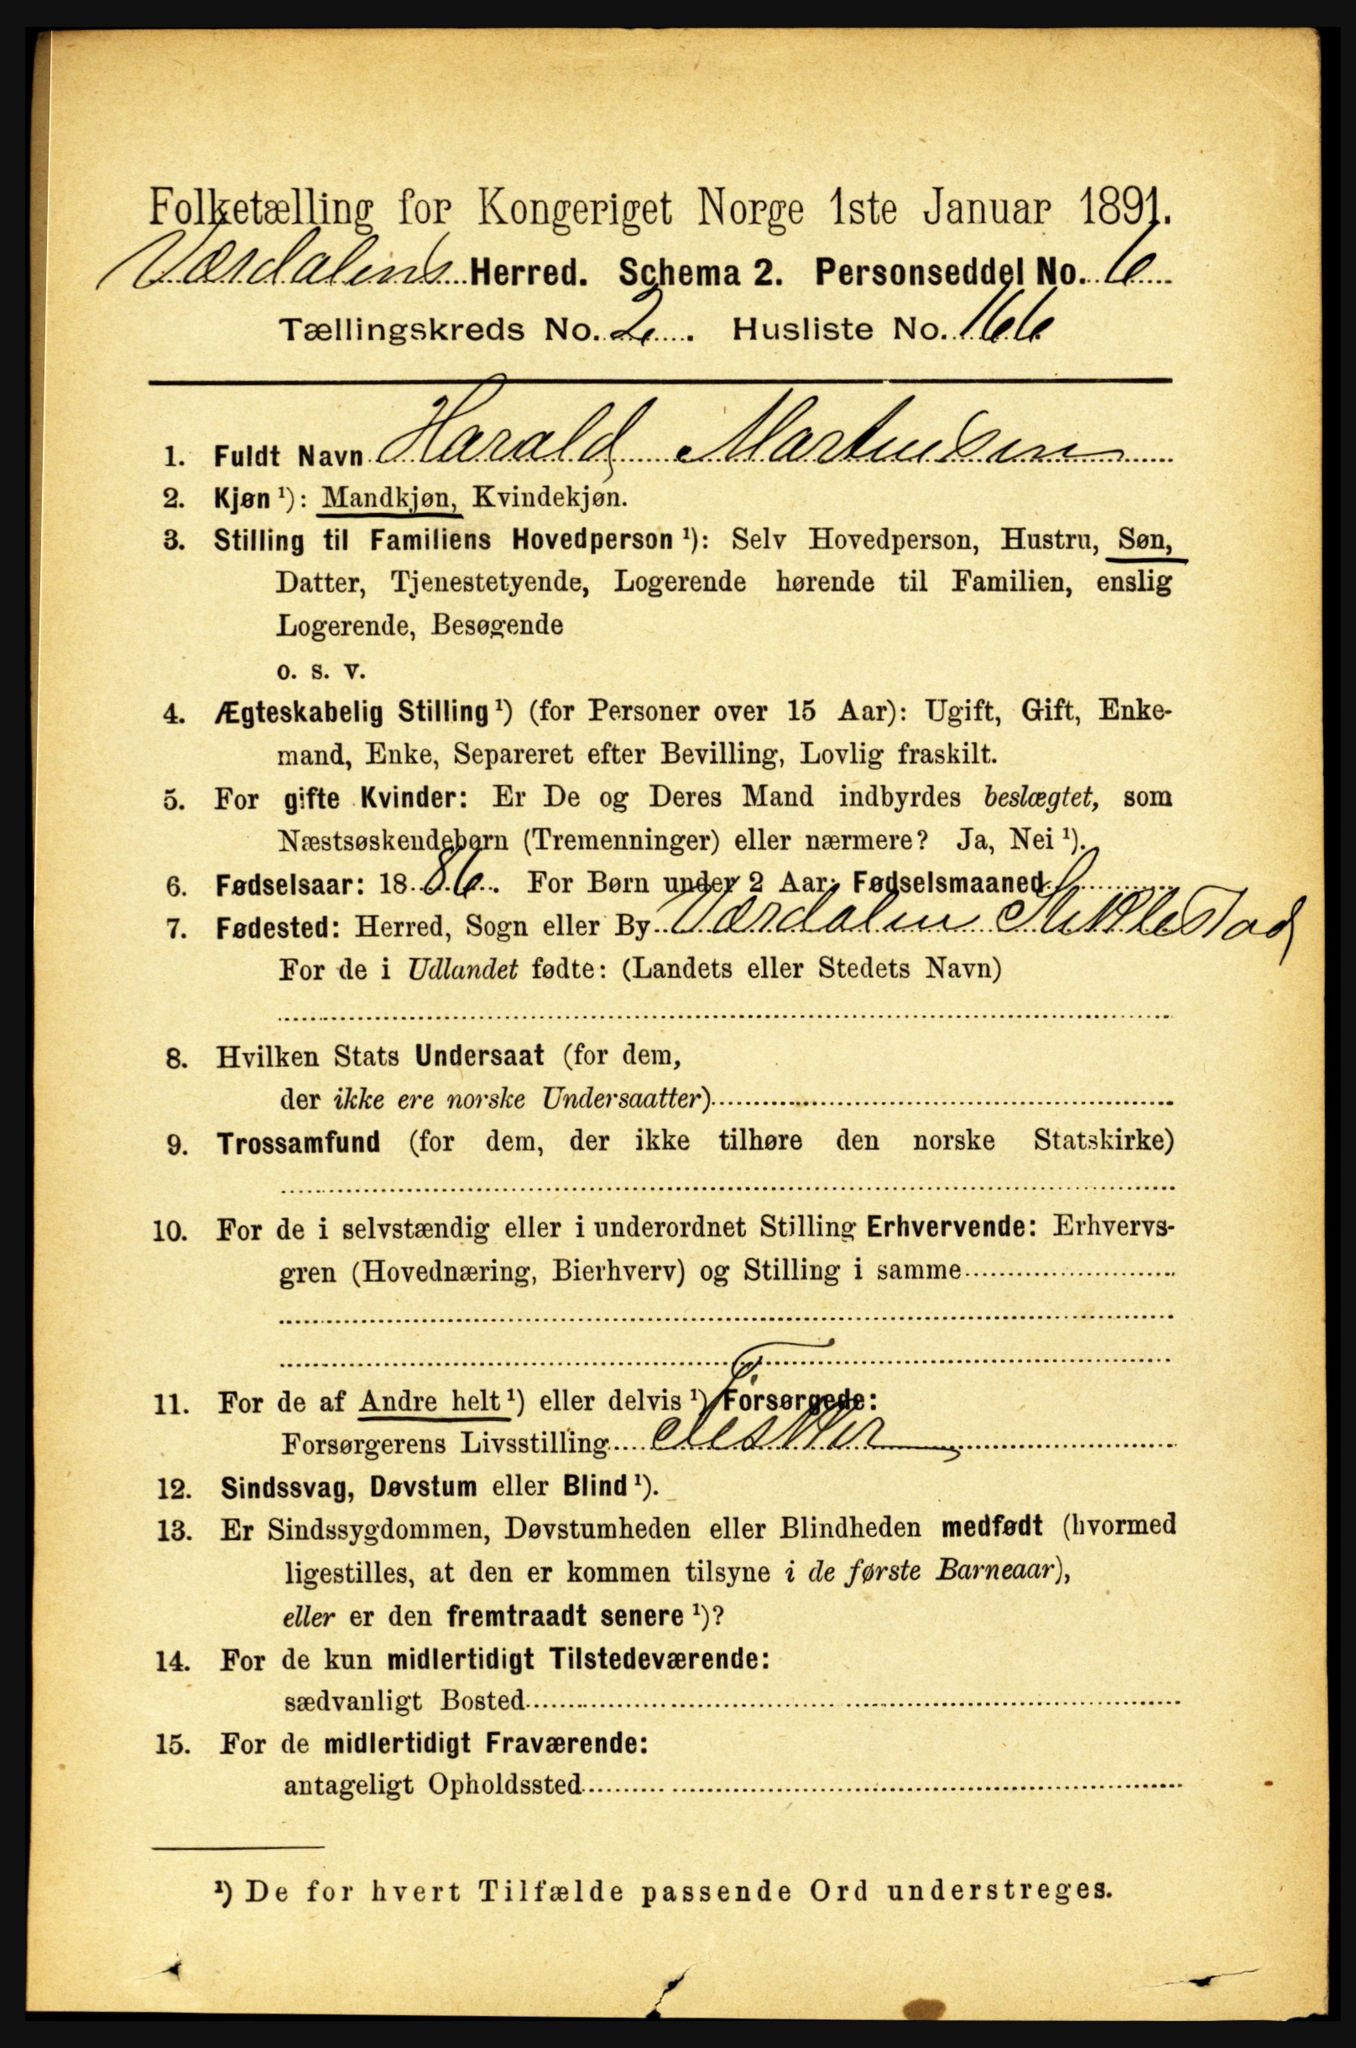 Folketælling for Kongeriget Norge 1ste Januar 1891.
Værdalens Herred. Schema 2. Personseddel No. 6
Tællingskreds No. 2. Husliste No. 166
1. Fuldt Navn Harald Martinsen
2. Kjøn ¹): Mandkjøn, Kvindekjøn.
3. Stilling til Familiens Hovedperson ¹): Selv Hovedperson, Hustru, Søn,
Datter, Tjenestetyende, Logerende hørende til Familien, enslig
Logerende, Besøgende
o. s. v.
4. Ægteskabelig Stilling ¹) (for Personer over 15 Aar): Ugift, Gift, Enke-
mand, Enke, Separeret efter Bevilling, Lovlig fraskilt.
5. For gifte Kvinder: Er De og Deres Mand indbyrdes beslægtet, som
Næstsøskendebørn (Tremenninger) eller nærmere? Ja, Nei ¹).
6. Fødselsaar: 1886. For Børn under 2 Aar: Fødselsmaaned
7. Fødested: Herred, Sogn eller By Værdalen Stiklestad
For de i Udlandet fødte: (Landets eller Stedets Navn)
8. Hvilken Stats Undersaat (for dem,
der ikke ere norske Undersaatter)
9. Trossamfund (for dem, der ikke tilhøre den norske Statskirke)
10. For de i selvstændig eller i underordnet Stilling Erhvervende: Erhvervs-
gren (Hovednæring, Bierhverv) og Stilling i samme
11. For de af Andre helt ¹) eller delvis ¹) Forsørgede:
Forsørgerens Livsstilling
12. Sindssvag, Døvstum eller Blind ¹).
13. Er Sindssygdommen, Døvstumheden eller Blindheden medfødt (hvormed
ligestilles, at den er kommen tilsyne i de første Barneaar),
eller er den fremtraadt senere ¹)?
14. For de kun midlertidigt Tilstedeværende:
sædvanligt Bosted
15. For de midlertidigt Fraværende:
antageligt Opholdssted
¹) De for hvert Tilfælde passende Ord understreges.